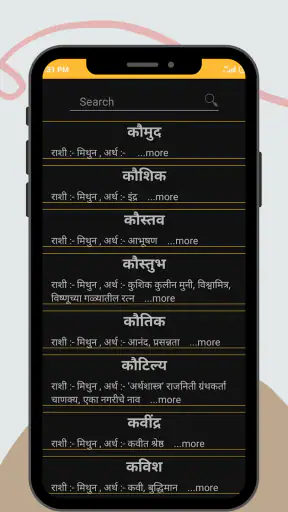 :31 PM
Search
कौमुद
राशी :- मिथुन , अर्थ :-    ...more
कौशिक
राशी :- मिथुन , अर्थ :- इंद्र    ...more
कौस्तव
राशी :- मिथुन , अर्थ :- आभूषण    ...more
कौस्तुभ
राशी :- मिथुन , अर्थ :- कुशिक कुलीन मुनी, विश्वामित्र,
विष्णूच्या गळ्यातील रत्न    ...more
कौतिक
राशी :- मिथुन , अर्थ :- आनंद, प्रसन्नता    ...more
कौटिल्य
राशी :- मिथुन , अर्थ :- 'अर्थशास्त्र' राजनिती ग्रंथकर्ता
चाणक्य, एका नगरीचे नाव    ...more
कवींद्र
राशी :- मिथुन , अर्थ :- कवीत श्रेष्ठ    ...more
कविश
राशी :- मिथुन , अर्थ :- कवी, बुद्धिमान    ...more